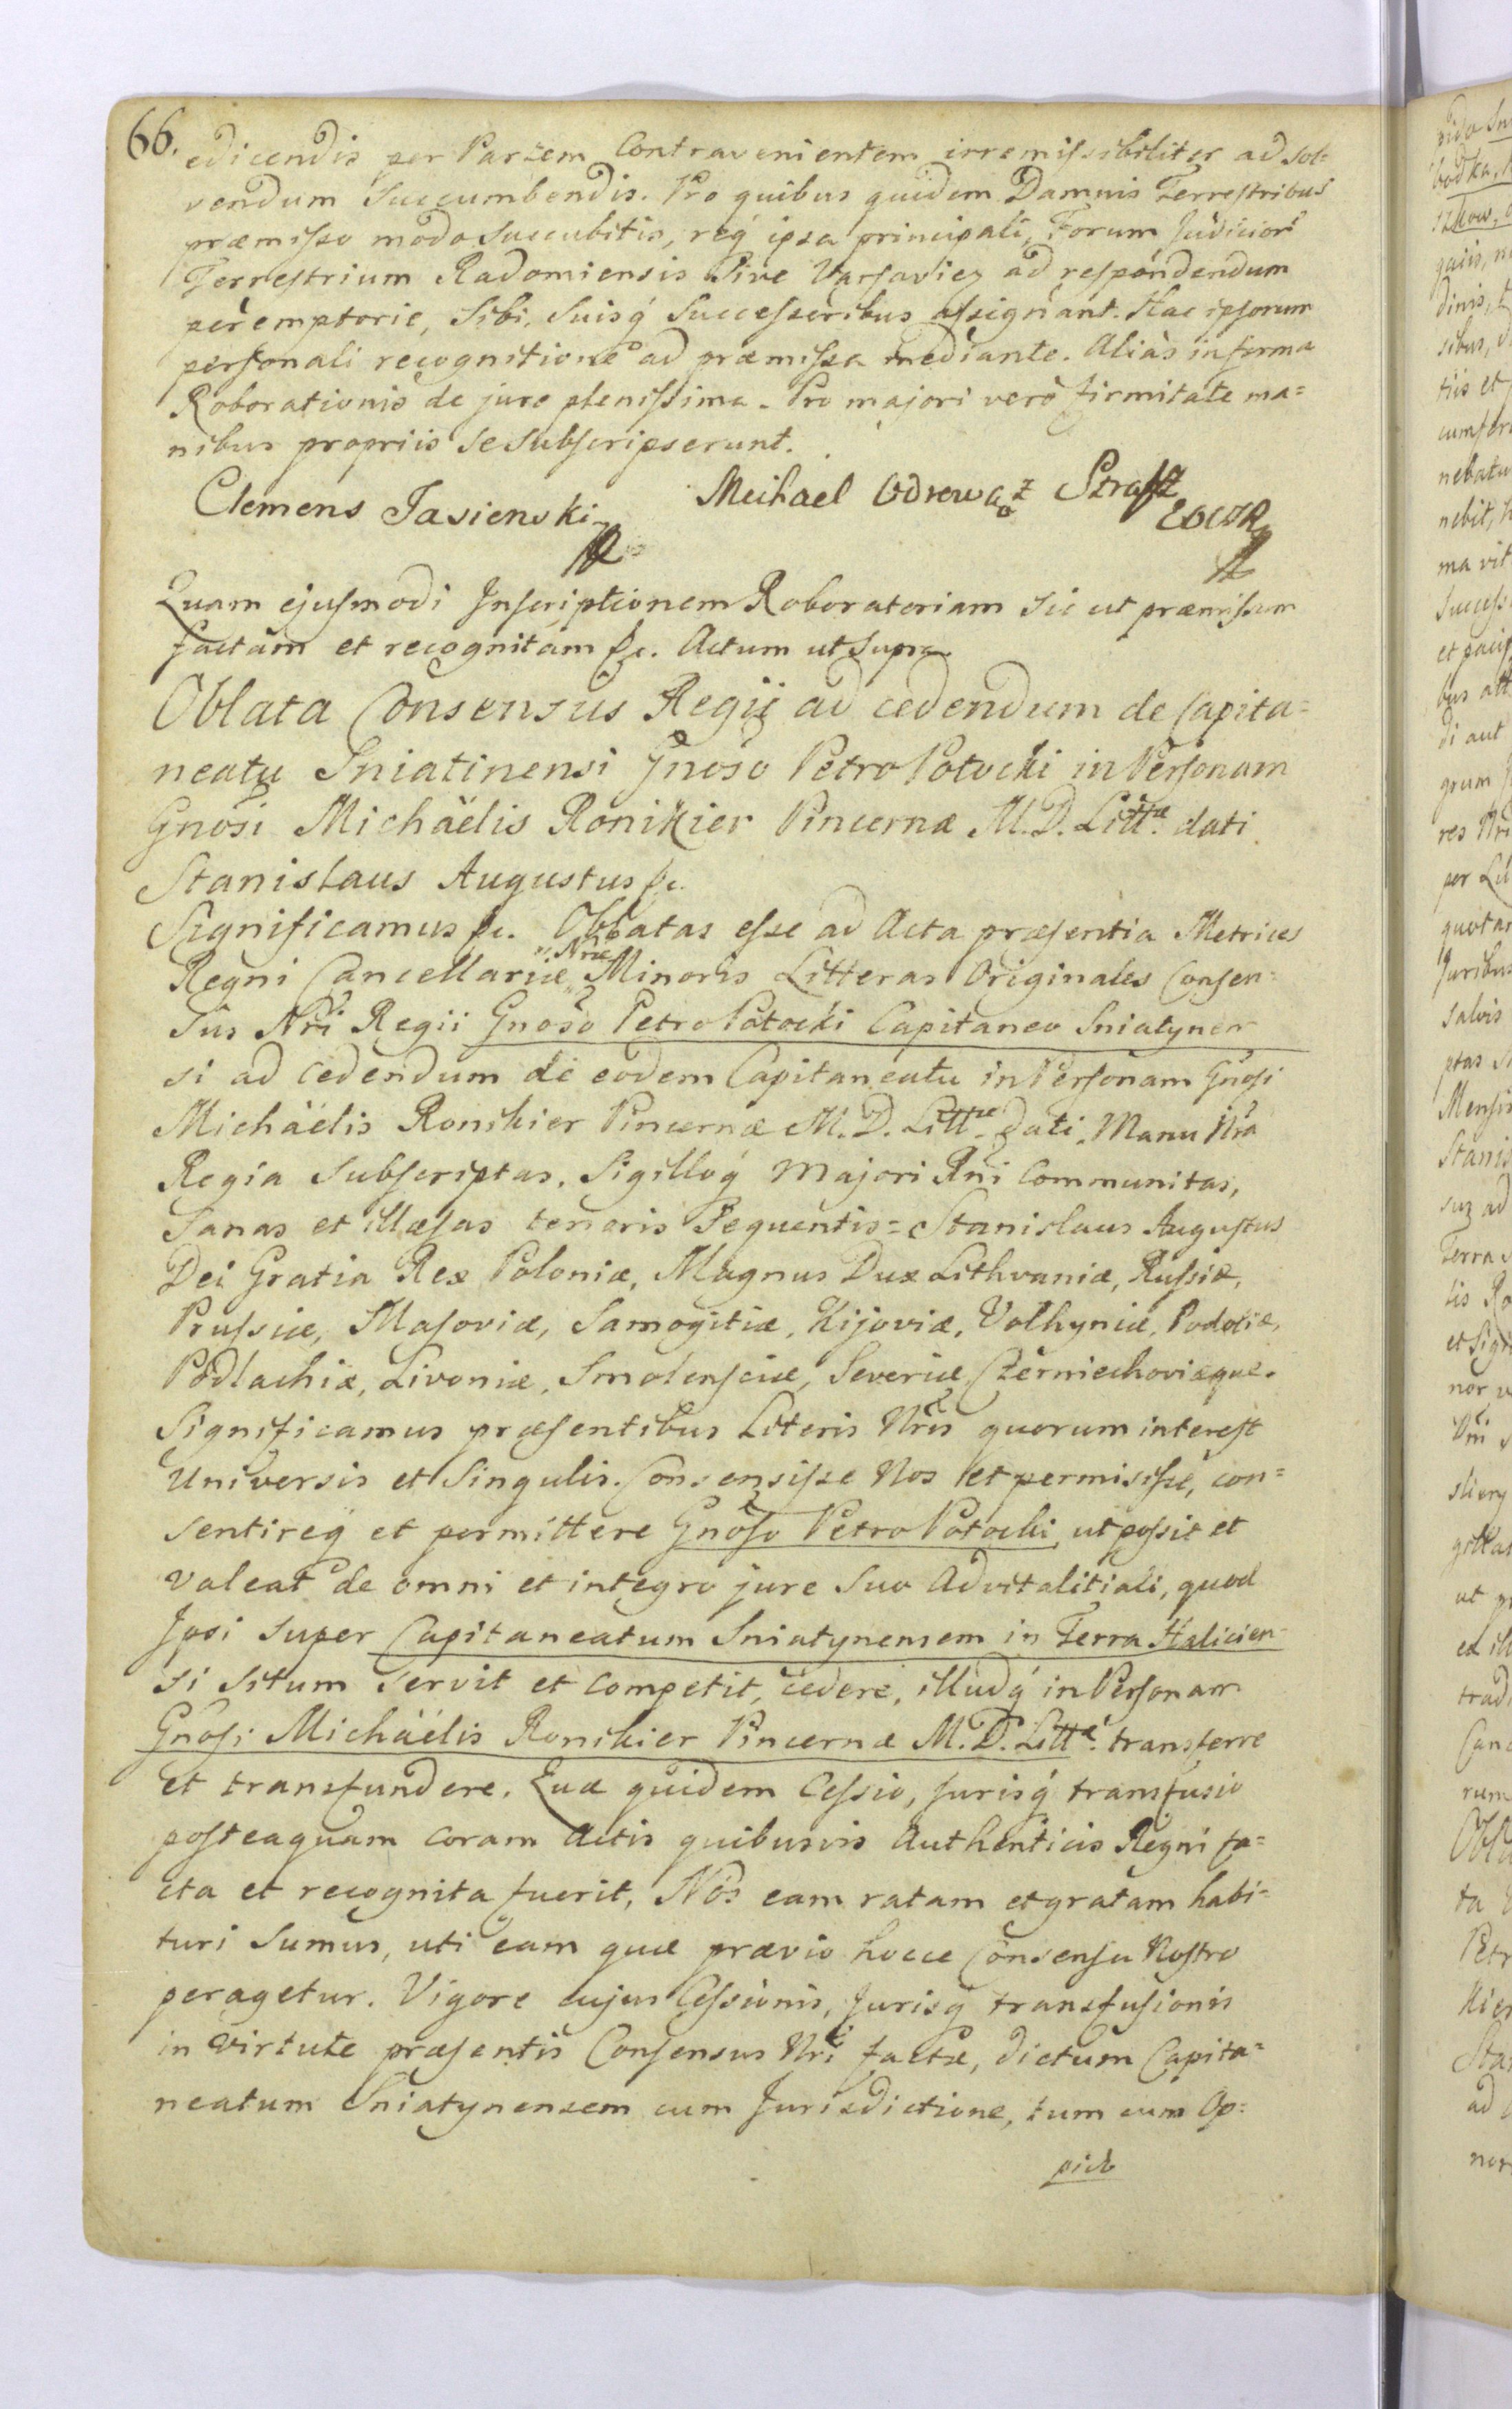 66.
edicendis per Partem Contravenientem irremissibiliter ad sol=
vendum Succumbendis. Pro quibus quidem Damnis Terrestribus
præmisso modo succubitis, req̃ ipsa principali, Forum Judicior̃
Terrestrium Radomiensis Sive Varsavien ad respondendum
peremptorie, Sibi, Suisq́ Successoribus assignant. Hac ipsorum
personali recognitione ad præmissa mediante. Aliàs in forma
Roborationis de jure plenissima. Pro majori verò firmitate ma=
nibus propriis se subscripserunt.
Clemens Jasienski
Meihael Odrowąż
Quam ejusmodi Inscriptionem Roboratoriam sic ut præmissum
factam et recognitam &c. Actum ut supra.
Oblata Consensus Regii ad cedendum de Capita=
neatu Sniatinensi Gnoso Petro Potocki in Personam
Gnosi Michäelis Ronikier Pincernæ M.D. Littæ dati
Stanislaus Augustus &c.
Significamus &c. Oblatas esse ad Acta præsentia Metrices
Regni Cancellariæ Nræ Minoris Litteras Originales Consen=
sus Nri Regii Gnoso Petro Potocki Capitaneo Sniatynen
si ad cedendum de eodem Capitaneatu in Personam Gnosi
Michäelis Ronikier Pincernæ M.D. Littæ dati, Manu Nra
Regia Subscriptas, Sigilloq́ Majori Rni Communitas,
Sanas et illæsas tenoris Sequentis = Stanislaus Augustus
Dei Gratia Rex Poloniæ, Magnus Dux Lithvaniæ, Russiæ,
Prussiæ, Masoviæ, Samogitiæ, Kijoviæ, Volhyniæ, Podoliæ,
Podlachiæ, Livoniæ, Smolensciæ, Severiæ Czerniechoviæque.
Significamus præsentibus Literis Nris quorum interest
Universis et Singulis. Consensisse Nos et permisisse, con=
sentireq́ et permittere Gnoso Petro Potocki, ut possit et
valeat de omni et integro jure Suo Advitalitiali, quod
Ipsi super Capitaneatum Sniatynensem in Terra Halicien=
si situm servit et competit, cedere, illudq́ in Personam
Gnosi Michäelis Ronikier Pincernæ M.D. Littæ. transferre
et transfundere. Quæ quidem Cessio, Jurisq́ transfusio
posteaquam coram Actis quibusvis Authenticis Regni fa=
cta et recognita fuerit, Nos eam ratam et gratam habi=
turi Sumus, uti eam quæ prævio hocce Consensu Nostro
peragetur. Vigore cujus Cessionis, Jurisq́ transfusionis
in virtute præsentis Consensus Nri factæ, dictum Capita=
neatum Sniatynensem cum Jurisdictione, tum cum Op=
pido